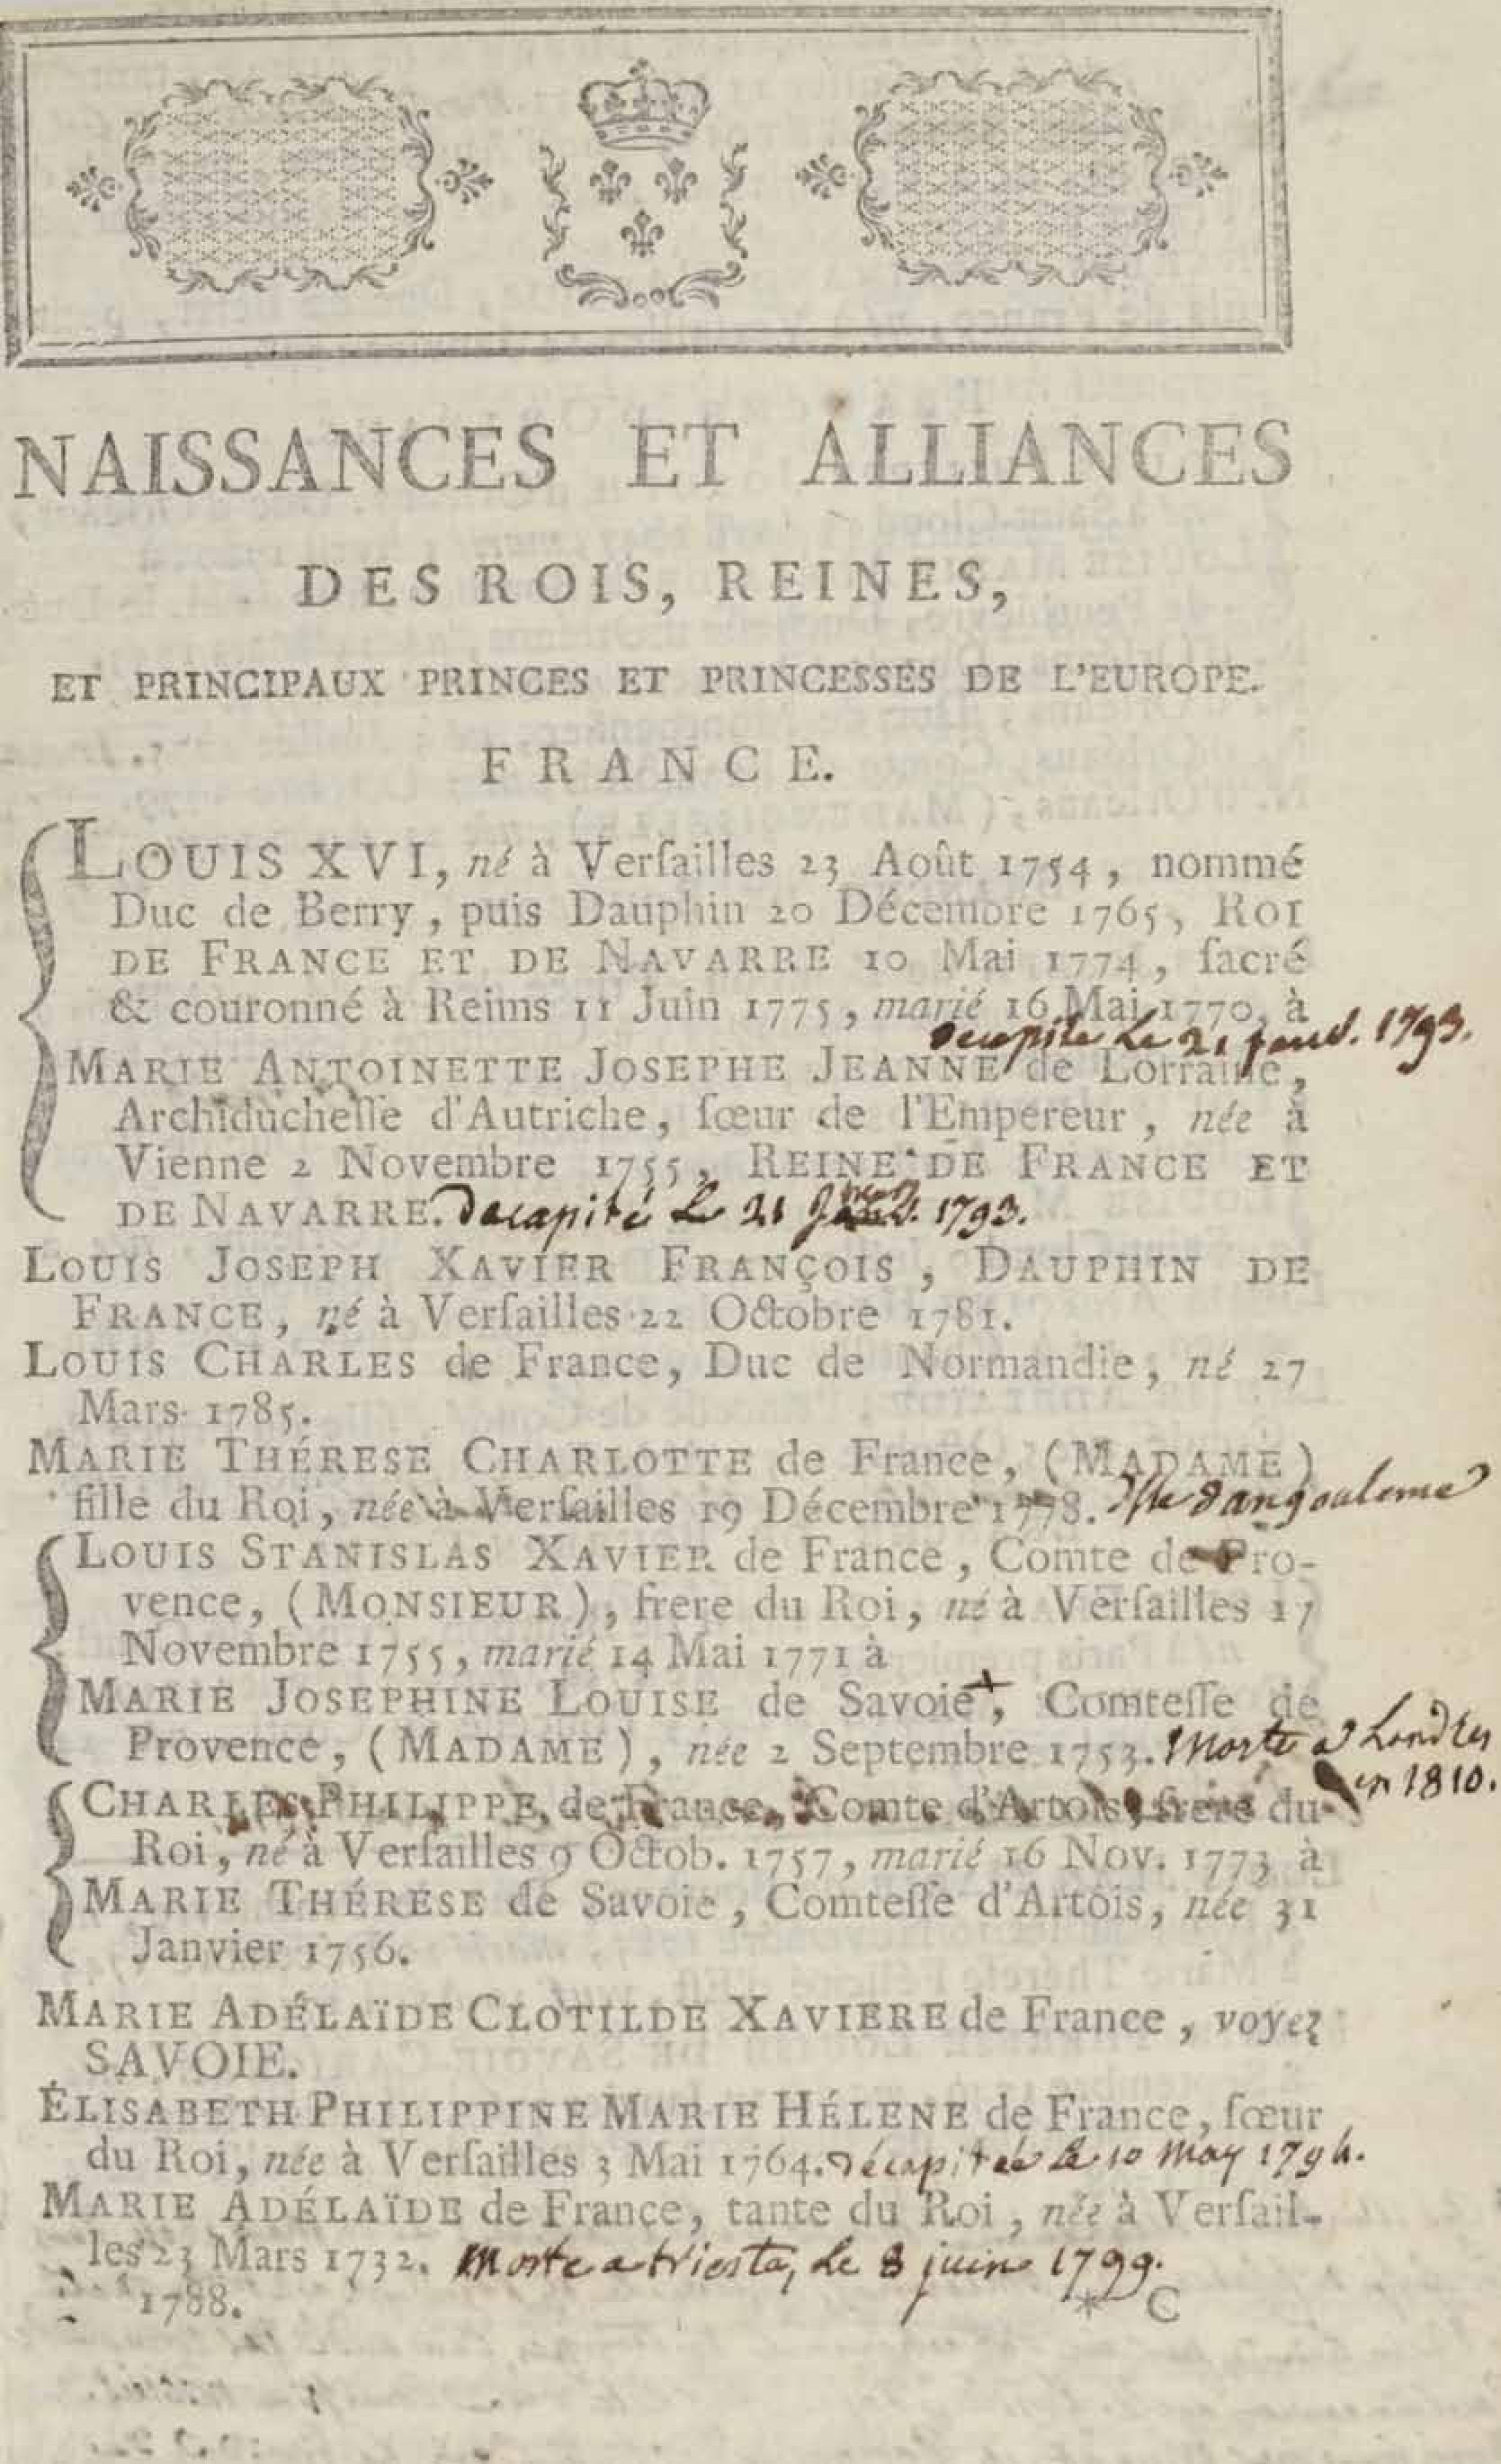 NAISSANCES ET ALLIANCES
DES ROIS, REINES,
ET PRINCIPAUX PRINCES ET PRINCESSES DE L'EUROPE.
FRANCE.
LOUIS XVI, né à Verſailles 23 Août 1754, nommé
Duc de Berry, puis Dauphin 20 Décembre 1765, ROI
DE FRANCE ET DE NAVARRE 10 Mai 1774, ſacré
& couronné à Reims 11 Juin 1775, marié 16 Mai 1770, à
decapité le 21 janv. 1793.
MARIE ANTOINETTE JOSEPHE JEANNE de Lorraine,
Archiducheſſe d'Autriche, ſœur de l'Empereur, née à
Vienne 2 Novembre 1755, REINE DE FRANCE ET
DE NAVARRE. Decapité le 21 1793.
LOUIS JOSEPH XAVIER FRANÇOIS, DAUPHIN DE
FRANCE, né à Verſailles 22 Octobre 1781.
LOUIS CHARLES de France, Duc de Normandie, né 27
Mars 1785.
MARIE THÉRESE CHARLOTTE de France, (MADAME)
fille du Roi, née à Verſailles 19 Décembre 1778. dangouleme
LOUIS STANISLAS XAVIER de France, Comte de Pro-
vence, (MONSIEUR), frere du Roi, né à Verſailles 17
Novembre 1755, marié 14 Mai 1771 à
MARIE JOSEPHINE LOUISE de Savoie+, Comteſſe de
Provence, (MADAME), née 2 Septembre 1753. Morte a Londres
en 1810.
CHARLES PHILIPPE de France, Comte d'Artois, frere du
Roi, né à Verſailles 9 Octob. 1757, marié 16 Nov. 1773 à
MARIE THÉRESE de Savoie, Comteſſe d'Artois, née 31
Janvier 1756.
MARIE ADÉLAÏDE CLOTILDE XAVIERE de France, voyez
SAVOIE.
ÉLISABETH PHILIPPINE MARIE HÉLENE de France, ſœur
du Roi, née à Verſailles 3 Mai 1764. Décapitée le 10 May 1794.
MARIE ADÉLAÏDE de France, tante du Roi, née à Verſail-
les 23 Mars 1732. Morte a trieste, le 8 juin 1799.
1788. * C